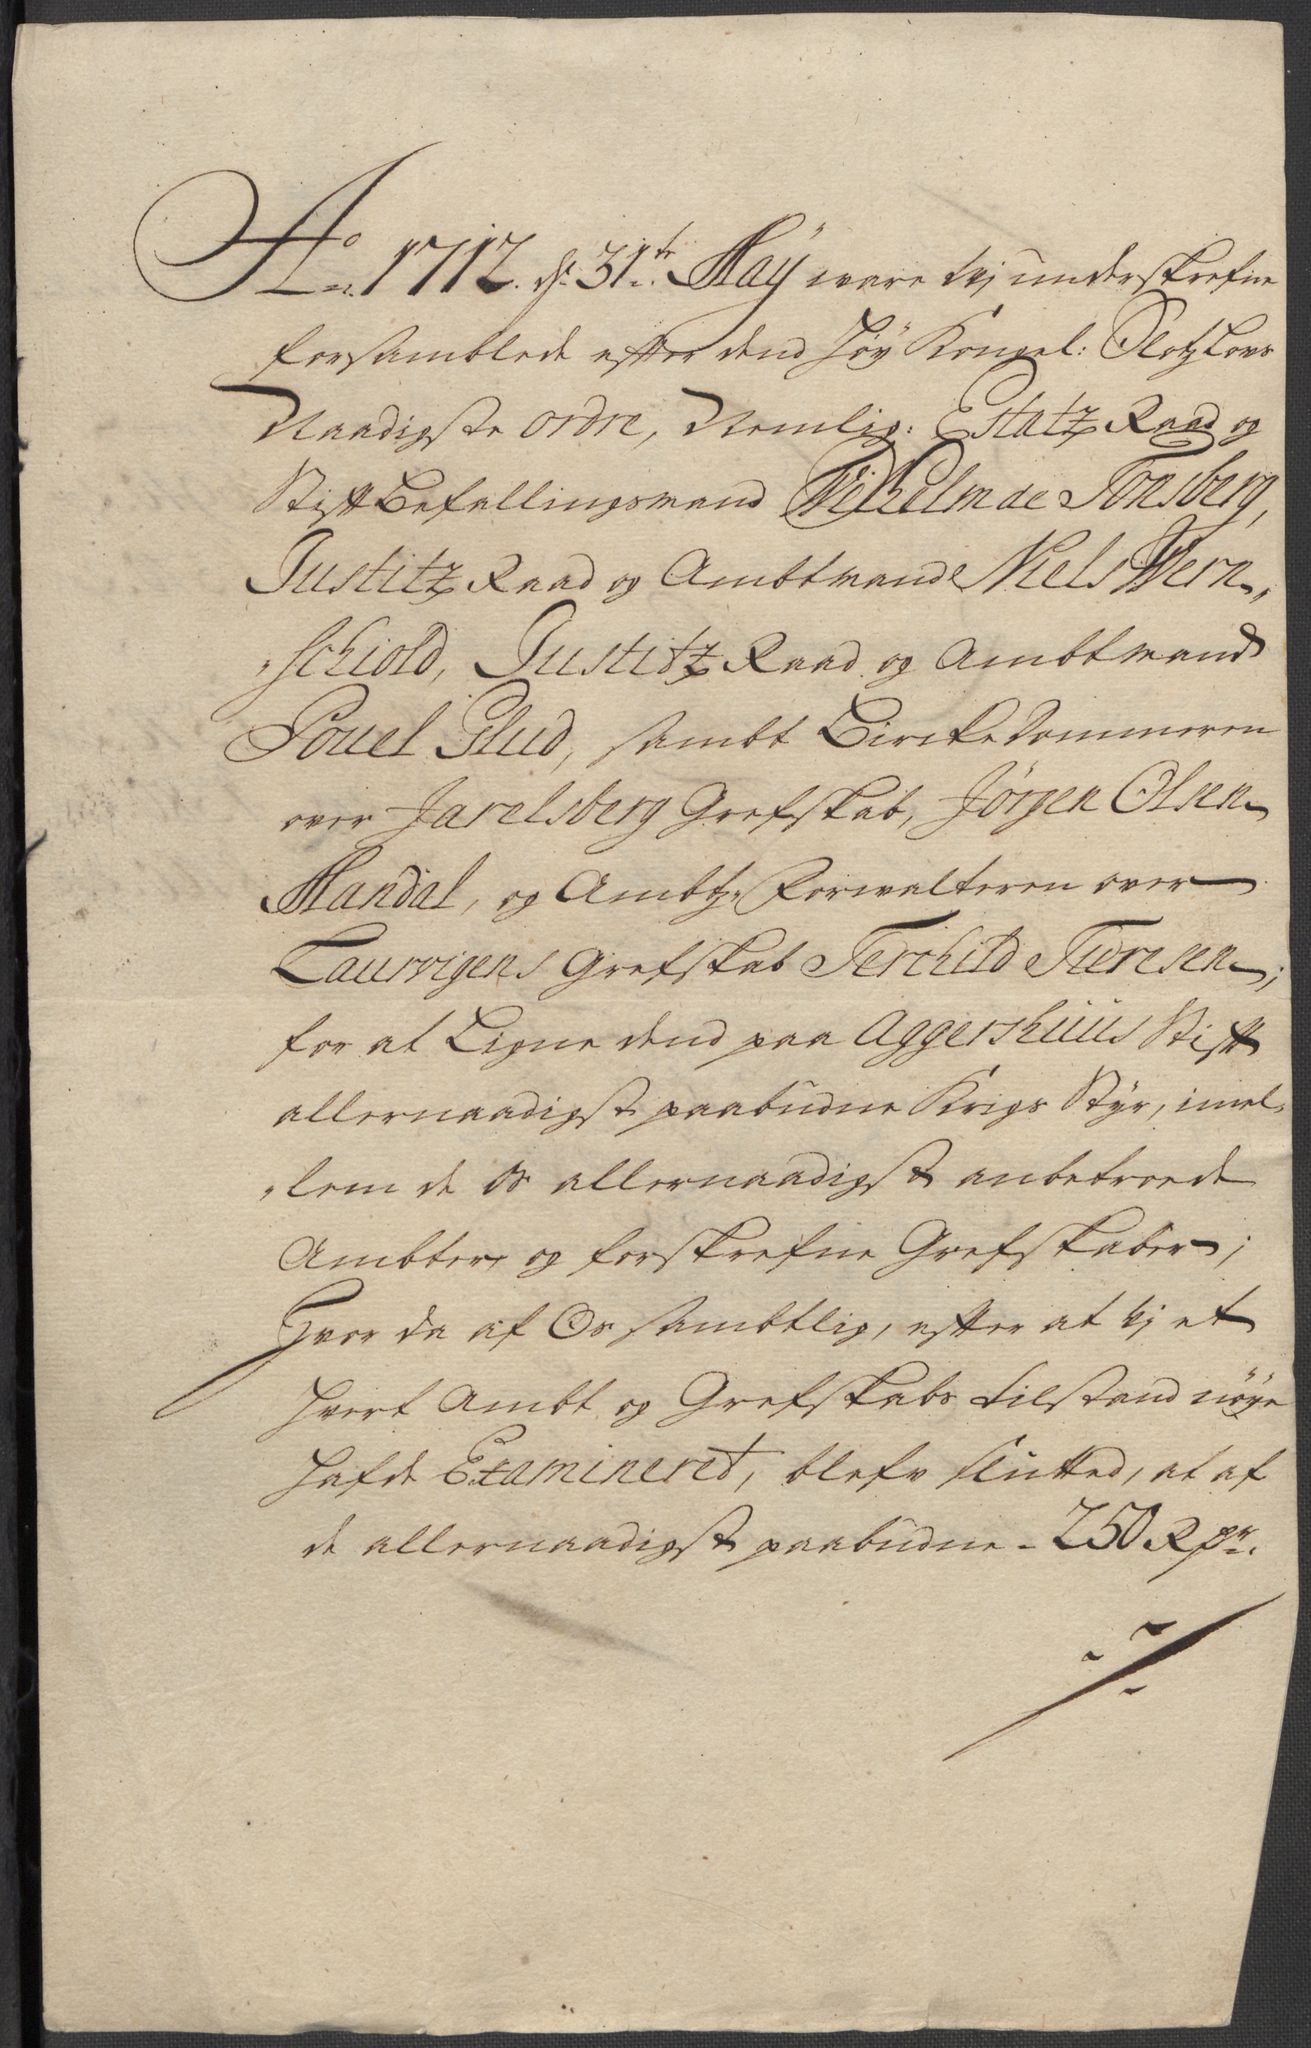 Ao. 1712. d. 31te. Maÿ ware wj underskrefne
forsamblede efter dend høÿ Kongel: Slotz Lovs
Naadigste ordre, Nemlig: Estatz Raad og
Stift Befallingsmand Wilhelm de Tonsberg,
Justitz Raad og Ambtmand Niels Wern-
schiold, Justitz Raad og Ambtmand
Pouel Glud, sambt Bircke Dommeren
over Jarelsberg Grefskab, Jørgen Olsen
Mandal, og Ambtz Forwalteren over
Laurvigens Grefskab Terchild Turesen;
for at Ligne dend paa Aggershuus Stift
allernaadigst paabudne Krigs Styr, imel-
lem de os allernaadigst anbetroede
Ambter og forskrefne Grefskaber;
Hvor da af Os sambtlig, efter at vj et
hvert Ambt og Grefskabs tilstand nøÿe
hafde Examineret, blefv sluttet, at af
de allernaadigst paabudne - 250 R pr.